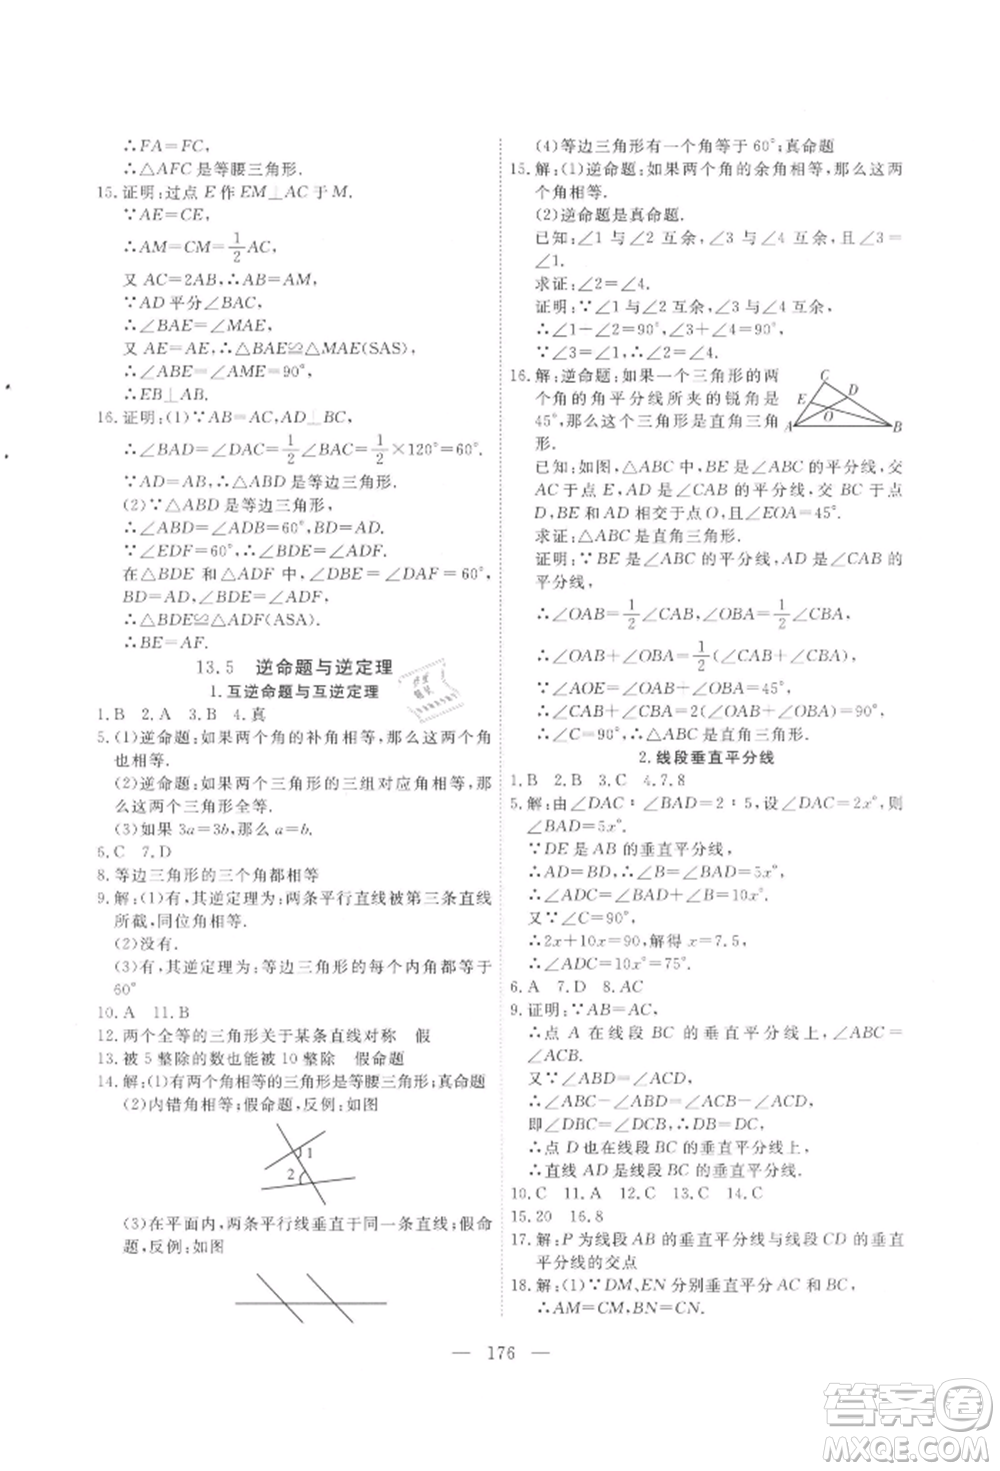 ∴FA=FC,
∴△AFC是等腰三角形.
15.证明:过点 E 作 EM⊥AC 于 M.
∵AE=CE,
∴AM=CM=1/2AC,
又 AC=2AB,∴AB=AM,
∵AD 平分∠BAC,
∴∠BAE=∠MAE,
又 AE=AE,∴△BAE≌△MAE(SAS),
∴∠ABE=∠AME=90°,
∴EB⊥AB.
16.证明:(1)∵AB=AC,AD⊥BC,
∴∠BAD=∠DAC=1/2∠BAC=1/2×120°=60°.
∵AD=AB,∴△ABD 是等边三角形.
(2)∵△ABD 是等边三角形,
∴∠ABD=∠ADB=60°,BD=AD.
∵∠EDF=60°,∴∠BDE=∠ADF.
在△BDE 和△ADF 中,∠DBE=∠DAF=60°,
BD=AD,∠BDE=∠ADF,
∴△BDE≌△ADF(ASA).
∴BE=AF.
13.5 逆命题与逆定理
1.互逆命题与互逆定理
1.B 2.A 3.B 4.真
5.(1)逆命题:如果两个角的补角相等,那么这两个角
也相等.
(2)逆命题:如果两个三角形的三组对应角相等,那
么这两个三角形全等.
(3)如果 3a=3b,那么 a=b.
6.C 7.D
8.等边三角形的三个角都相等
9.解:(1)有,其逆定理为:两条平行直线被第三条直线
所截,同位角相等.
(2)没有.
(3)有,其逆定理为:等边三角形的每个内角都等于
60°
10.A 11.B
12.两个全等的三角形关于某条直线对称 假
13.被 5 整除的数也能被 10 整除 假命题
14.解:(1)有两个角相等的三角形是等腰三角形;真命题
(2)内错角相等;假命题,反例:如图
1
2
(3)在平面内,两条平行线垂直于同一条直线;假命
题,反例:如图
(4)等边三角形有一个角等于 60°;真命题
15.解:(1)逆命题:如果两个角的余角相等,那么这两
个角相等.
(2)逆命题是真命题.
已知:∠1 与∠2 互余,∠3 与∠4 互余,且∠3=
∠1.
求证:∠2=∠4.
证明:∵∠1 与∠2 互余,∠3 与∠4 互余,
∴∠1+∠2=90°,∠3+∠4=90°,
∵∠3=∠1,∴∠2=∠4.
16.解:逆命题:如果一个三角形的两
个角的角平分线所夹的锐角是
45°,那么这个三角形是直角三角
形.
C
E
D
O
A
B
已知:如图,△ABC 中,BE 是∠ABC 的平分线,交
AC 于点 E,AD 是∠CAB 的平分线,交 BC 于点
D,BE 和 AD 相交于点 O,且∠EOA=45°.
求证:△ABC 是直角三角形.
证明:∵BE 是∠ABC 的平分线,AD 是∠CAB 的
平分线,
∴∠OAB=1/2∠CAB,∠OBA=1/2∠CBA,
∴∠OAB+∠OBA=1/2(∠CAB+∠CBA),
∵∠AOE=∠OAB+∠OBA=45°,
∴∠CAB+∠CBA=2(∠OAB+∠OBA)=90°,
∴∠C=90°,∴△ABC 是直角三角形.
2.线段垂直平分线
1.B 2.B 3.C 4.7.8
5.解:由∠DAC∶∠BAD=2∶5,设∠DAC=2x°,则
∠BAD=5x°.
∵DE 是 AB 的垂直平分线,
∴AD=BD,∴∠B=∠BAD=5x°,
∴∠ADC=∠B+∠BAD=10x°,
又∵∠C=90°,
∴2x+10x=90,解得 x=7.5,
∴∠ADC=10x°=75°.
6.A 7.D 8.AC
9.证明:∵AB=AC,
∴点 A 在线段 BC 的垂直平分线上,∠ABC=
∠ACB.
又∵∠ABD=∠ACD,
∴∠ABC-∠ABD=∠ACB-∠ACD,
即∠DBC=∠DCB,∴BD=CD,
∴点 D 也在线段 BC 的垂直平分线上,
∴直线 AD 是线段 BC 的垂直平分线.
10.C 11.A 12.C 13.C 14.C
15.20 16.8
17.解:P 为线段 AB 的垂直平分线与线段 CD 的垂直
平分线的交点
18.解:(1)∵DM、EN 分别垂直平分 AC 和 BC,
∴AM=CM,BN=CN.
— 176 —
答案圈
MXQE.COM